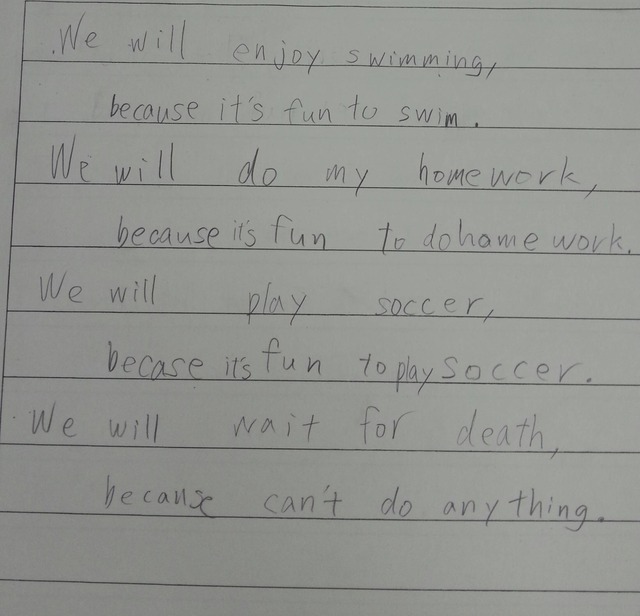 We will enjoy swimming,
because it's fun to swim.
We will do my homework,
because it's fun to do home work.
We will play soccer,
becase it's fun to play soccer.
We will wait for death,
because can't do anything.